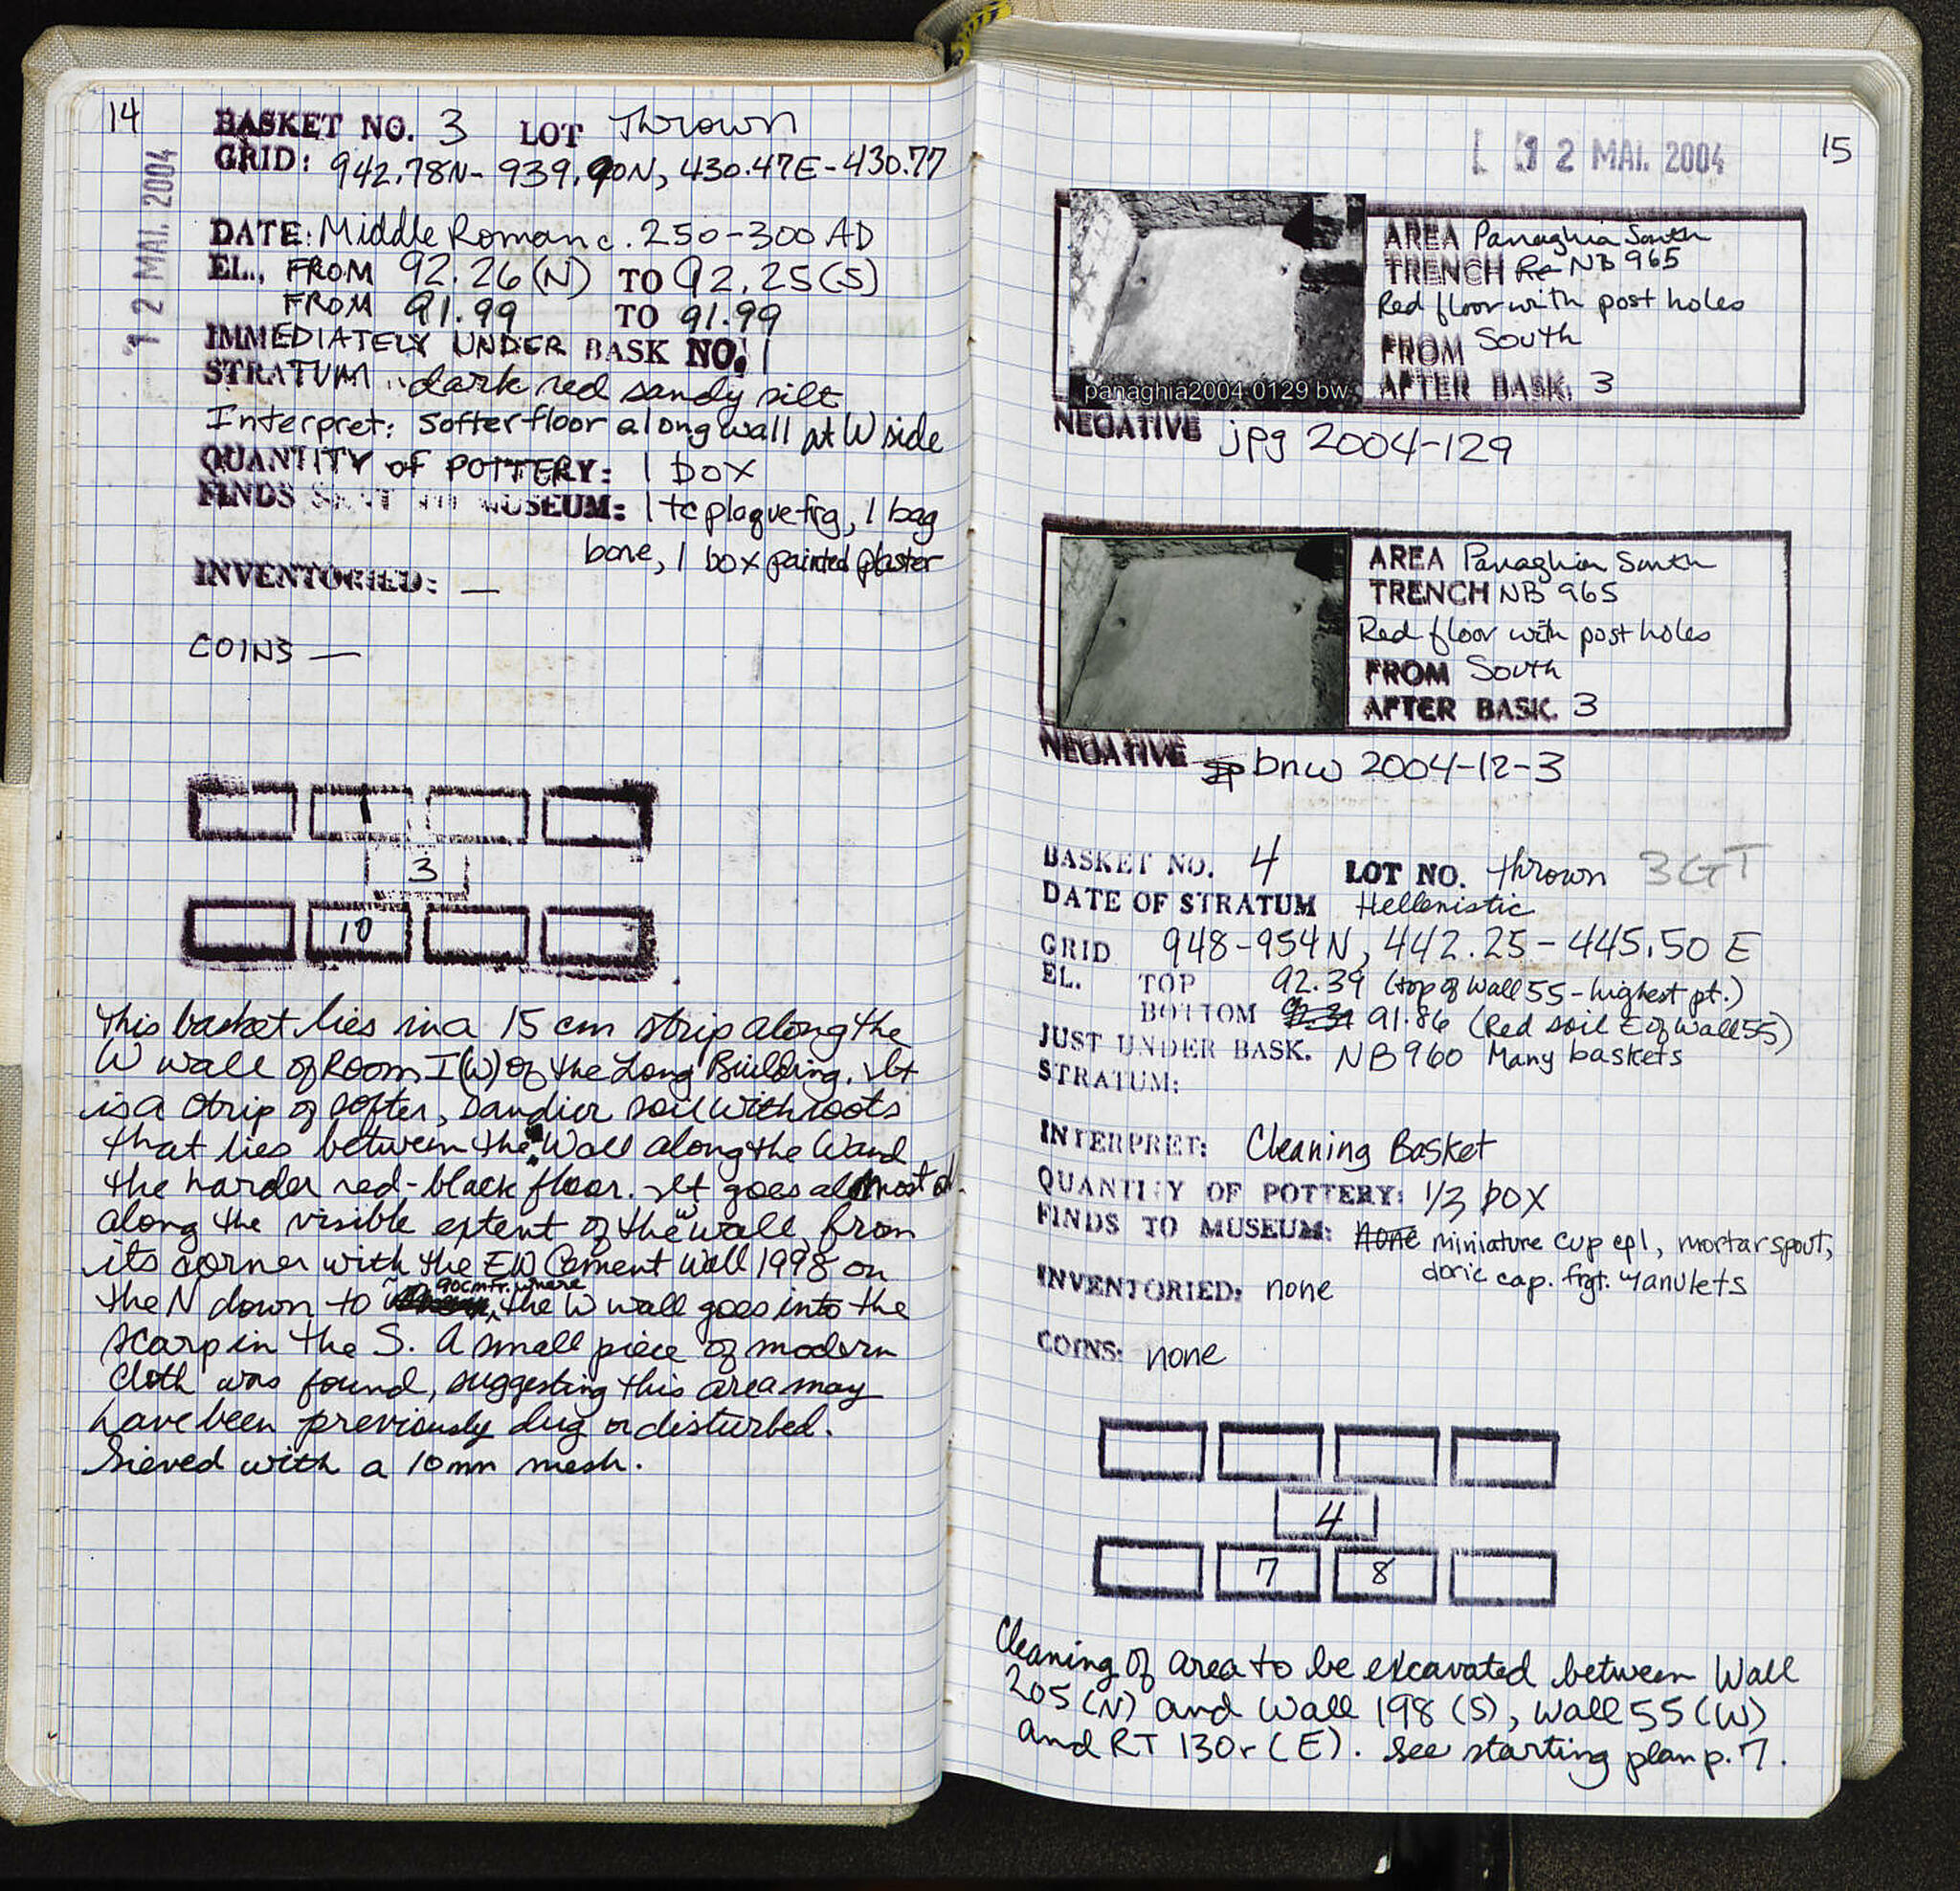 14
12 MAI. 2004
BASKET NO. 3 LOT Thrown
GRID: 942.78N - 939.90N, 430.47E - 430.77
DATE: Middle Roman c. 250-300 AD
EL., FROM 92.26 (N) TO 92.25 (S)
FROM 91.99 TO 91.99
IMMEDIATELY UNDER BASK NO. 1
STRATUM: dark red sandy silt
Interpret: softer floor along wall at W side
QUANTITY OF POTTERY: 1 box
FINDS SENT TO MUSEUM: 1 tc plaque frg, 1 bag
bone, 1 box painted plaster
INVENTORIED: —
COINS —
1
3
10
This basket lies in a 15 cm strip along the
W wall of Room I (W) of the Long Building. It
is a strip of softer, sandier soil with roots
that lies between the Wall along the W and
the harder red-black floor. It goes almost all
along the visible extent of the W wall, from
its corner with the EW Cement Wall 1998 on
the N down to ~90cm fr. where the W wall goes into the
scarp in the S. A small piece of modern
cloth was found, suggesting this area may
have been previously dug or disturbed.
Sieved with a 10mm mesh.
15
12 MAI. 2004
panaghia2004 0129 bw
AREA Panaghia South
TRENCH Re NB 965
Red floor with post holes
FROM South
AFTER BASK. 3
NEGATIVE jpg 2004-129
AREA Panaghia South
TRENCH NB 965
Red floor with post holes
FROM South
AFTER BASK. 3
NEGATIVE bnw 2004-12-3
BASKET NO. 4 LOT NO. thrown 3GT
DATE OF STRATUM Hellenistic
GRID 948-954N, 442.25-445.50 E
EL. TOP 92.39 (top of Wall 55 - highest pt.)
BOTTOM 91.86 (Red soil E of Wall 55)
JUST UNDER BASK. NB 960 Many baskets
STRATUM:
INTERPRET: Cleaning Basket
QUANTITY OF POTTERY: 1/3 box
FINDS TO MUSEUM: none miniature cup cpl, mortar spout,
doric cap. frgt. 4 anulets
INVENTORIED: none
COINS: none
4
7 8
Cleaning of area to be excavated between Wall
205 (N) and Wall 198 (S), Wall 55 (W)
and RT 130r (E). See starting plan p. 7.